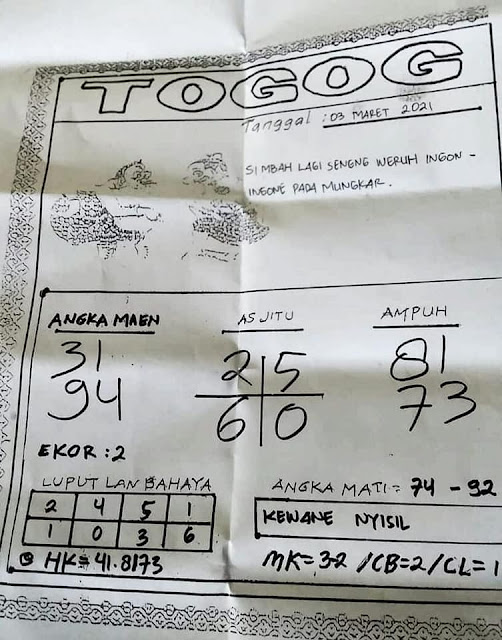 TOGOG
Tanggal : 03 MARET 2021
SIMBAH LAGI SENENG WERUH INGON -
INGONE PADA MUNGKAR.
ANGKA MAEN
31
94
EKOR : 2
AS JITU
2 5
6 0
AMPUH
81
73
LUPUT LAN BAHAYA
2 4 5 1
1 0 3 6
HK= 41.8173
ANGKA MATI = 74 - 92
KEWANE NYISIL
MK= 32 / CB=2 / CL= 1